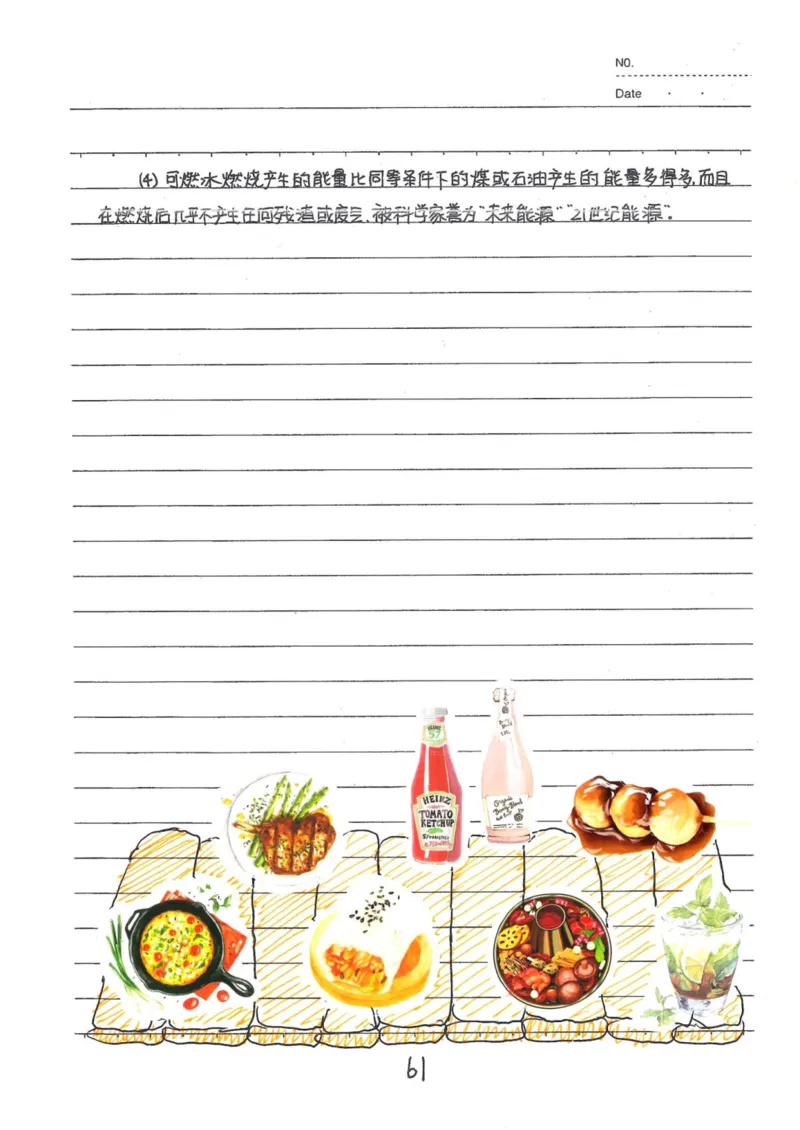 NO.
Date
(4) 可燃冰燃烧产生的能量比同等条件下的煤或石油产生的能量多得多,而且
在燃烧后几乎不产生任何残渣或废气,被科学家誉为“未来能源”“21世纪能源”.
57
HEINZ
TOMATO
KETCHUP
Organic
61